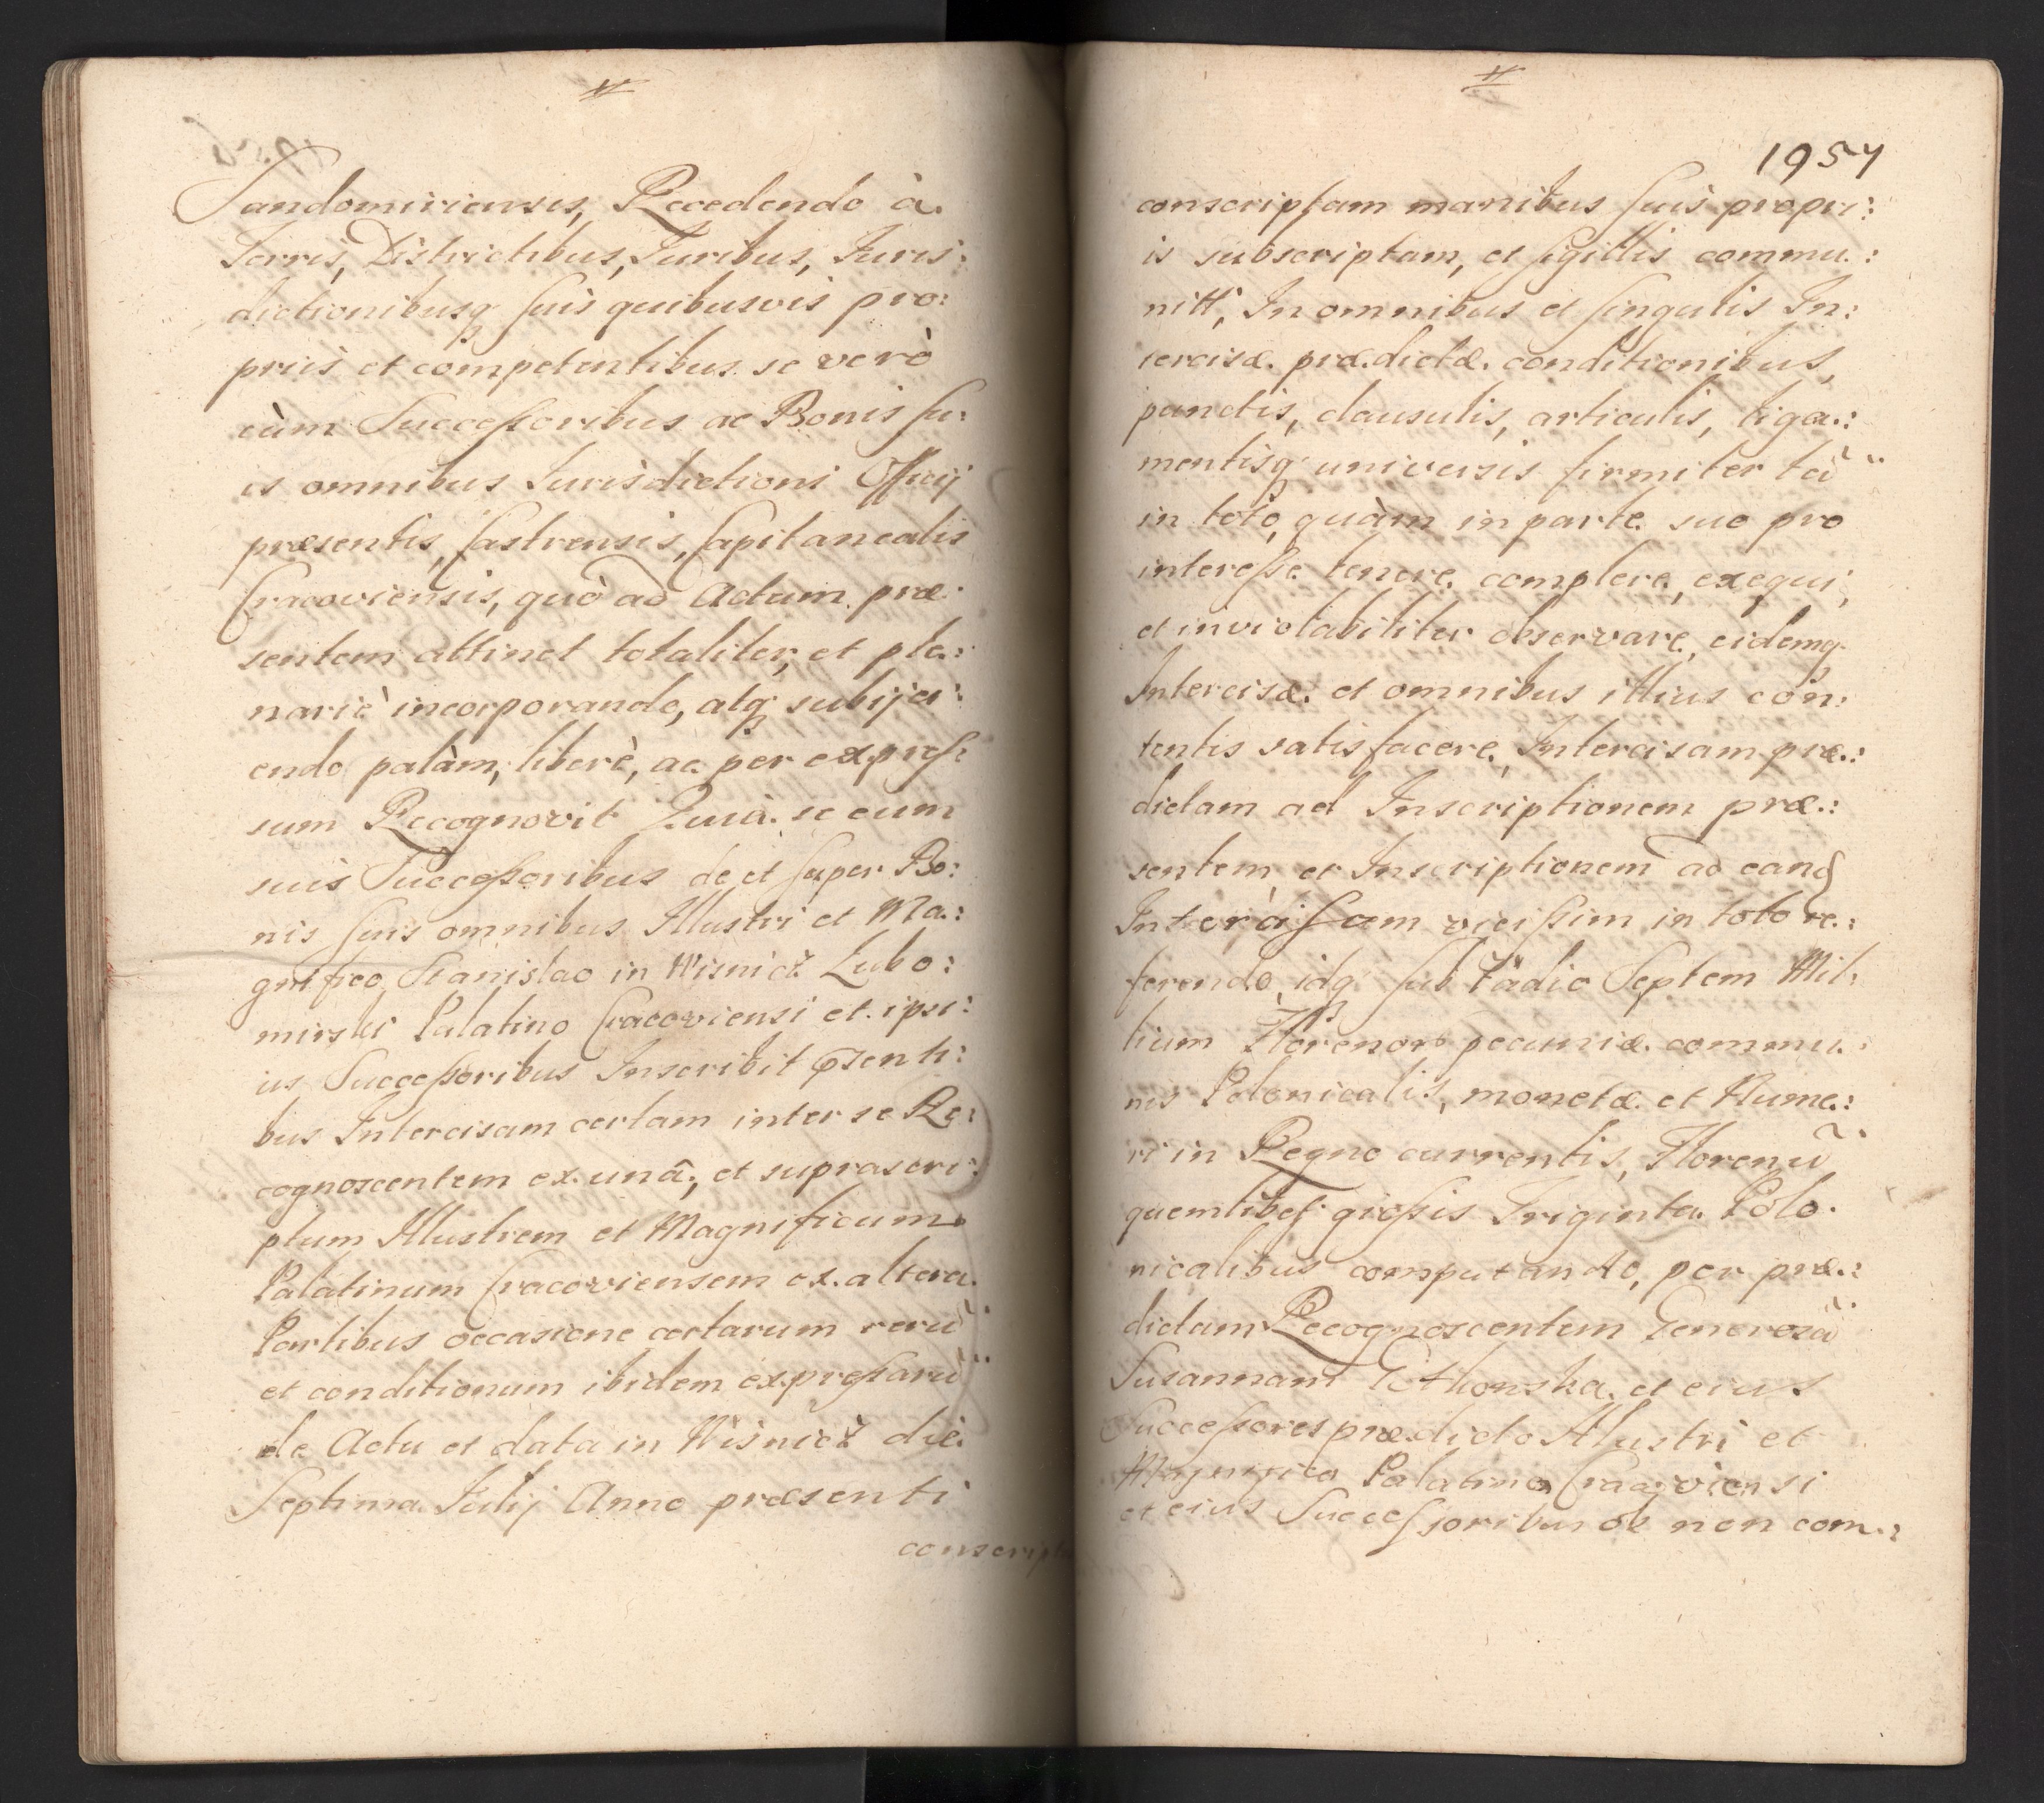 Sandomiriensis, Recedendo à
Terris, Districtibus, Juribus, Juris:
dictionibusq suis quibusvis pro:
prijs et competentibus se verò
cùm Successoribus ac Bonis su:
is omnibus Jurisdictioni Officij
præsentis, Castrensis, Capitanealis
Cracoviensis, quò ad Actum præ:
sentem attinet totaliter, et ple:
nariè incorporando, atq subijci:
endo palàm, liberè, ac per expres:
sum Recognovit Quià se cum
suis Successoribus de et super Bo:
nis suis omnibus Illustri et Ma:
gnifico Stanislao in Wisnicz Lubo:
mirski Palatino Cracoviensi et ipsi:
us Successoribus Inscribit pnsenti:
bus Intercisam certam inter se Re:
cognoscentem ex unâ, et suprascri:
ptum Illustrem et Magnificum
Palatinum Cracoviensem ex altera
Partibus occasione certarum rerũ
et conditionum ibidem expressarũ
de Actu et data in Wisnicz die
Septima Julij Anno præsenti
conscript
1957
conscriptam manibus suis propri:
is subscriptam, et sigillis commu:
nitt, In omnibus et singulis In:
tercisæ prædictæ conditionibus,
punctis, clausulis, articulis, liga:
mentisq universis firmiter tã
in toto, quàm in parte suo pro
interesse tenere complere, exequi,
et inviolabiliter observare, eidemq
Intercisæ et omnibus illius con:
tentis satisfacere, Intercisam præ:
dictam ad Inscriptionem præ:
sentem, et Inscriptionem ad eand
Intercisam vicissim in toto re:
ferendo, idq sub Vadio Septem Mil:
lium Florenor pecuniæ commu:
nis Polonicalis, monetæ et Nume:
ri in Regno currentis, Florenũ
quemlibet grossis Triginta Polo:
nicalibus computando, per præ:
dictam Recognoscentem Generosã
Susannam et eius
Successores prædicto Illustri et
Magnifico Palatino Cracoviensi
et eius Successoribus ob non com: